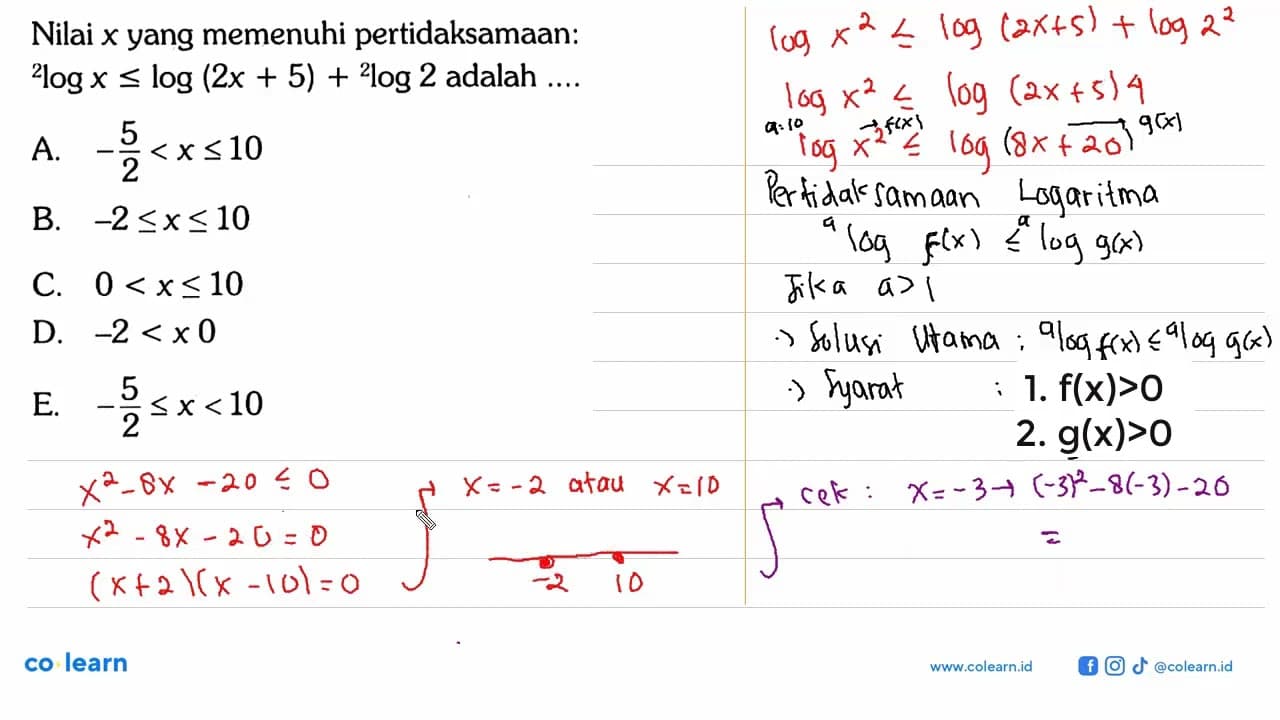 Nilai x yang memenuhi pertidaksamaan:
²log x ≤ log (2x + 5) + ²log 2 adalah ....
A. -5/2 < x ≤ 10
B. –2 ≤ x ≤ 10
C. 0 < x ≤ 10
D. –2 < x 0
E. -5/2 ≤ x < 10
log x² ≤ log (2x+5) + log 2²
log x² ≤ log (2x+5) 4
a=10 → f(x) → g(x)
log x² ≤ log (8x + 20)
Pertidaksamaan Logaritma
ᵃlog f(x) ≤ ᵃlog g(x)
Jika a > 1
·) Solusi Utama : ᵃlog f(x) ≤ ᵃlog g(x)
·) Syarat : 1. f(x)>0
2. g(x)>0
x² - 8x - 20 ≤ 0
x² - 8x - 20 = 0
(x+2)(x-10) = 0
x = -2 atau x = 10
-2 10
cek : x = -3 → (-3)² - 8(-3) - 20
=
co·learn
www.colearn.id
@colearn.id